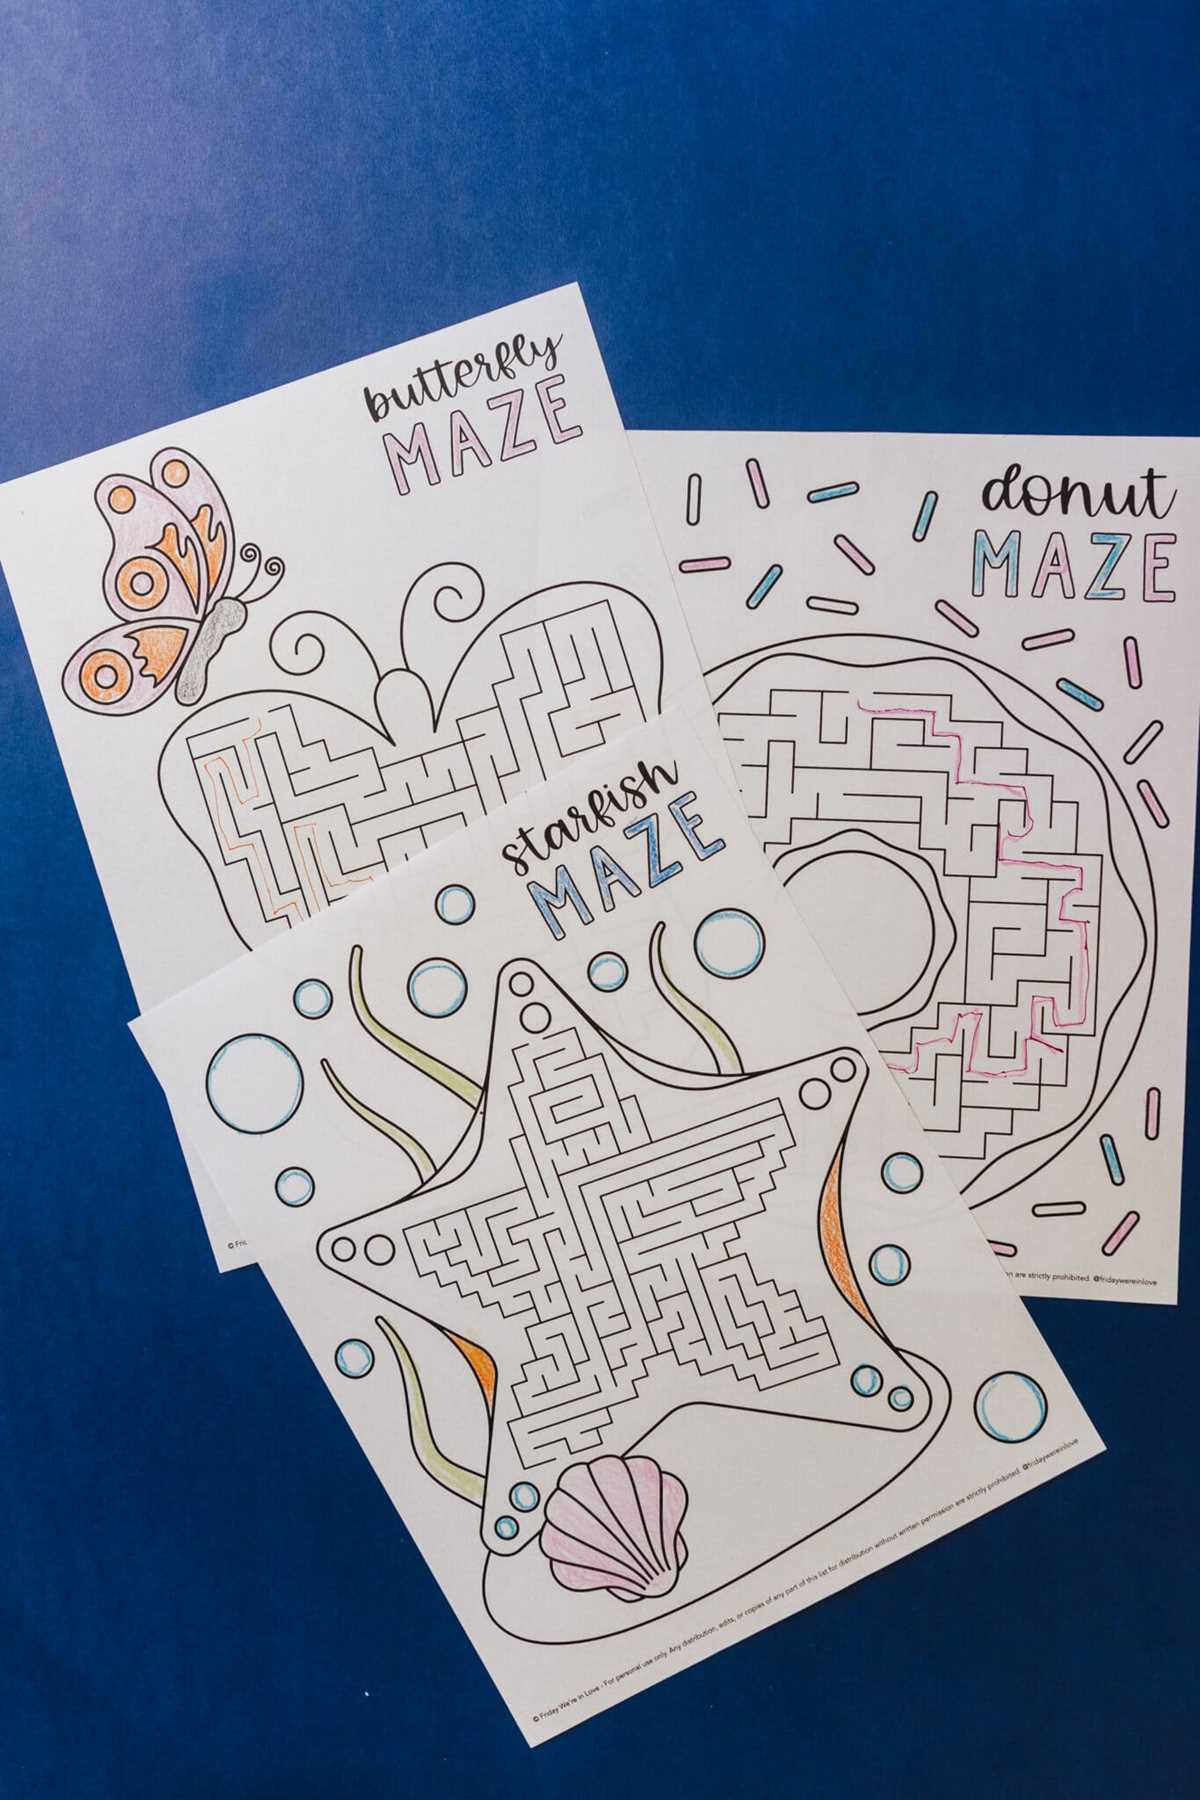 butterfly
MAZE
donut
MAZE
starfish
MAZE
© Fri
ion are strictly prohibited. @fridaywereinlove
© Friday We're in Love - For personal use only. Any distribution, edits, or copies of any part of this list for distribution without written permission are strictly prohibited. @fridaywereinlove